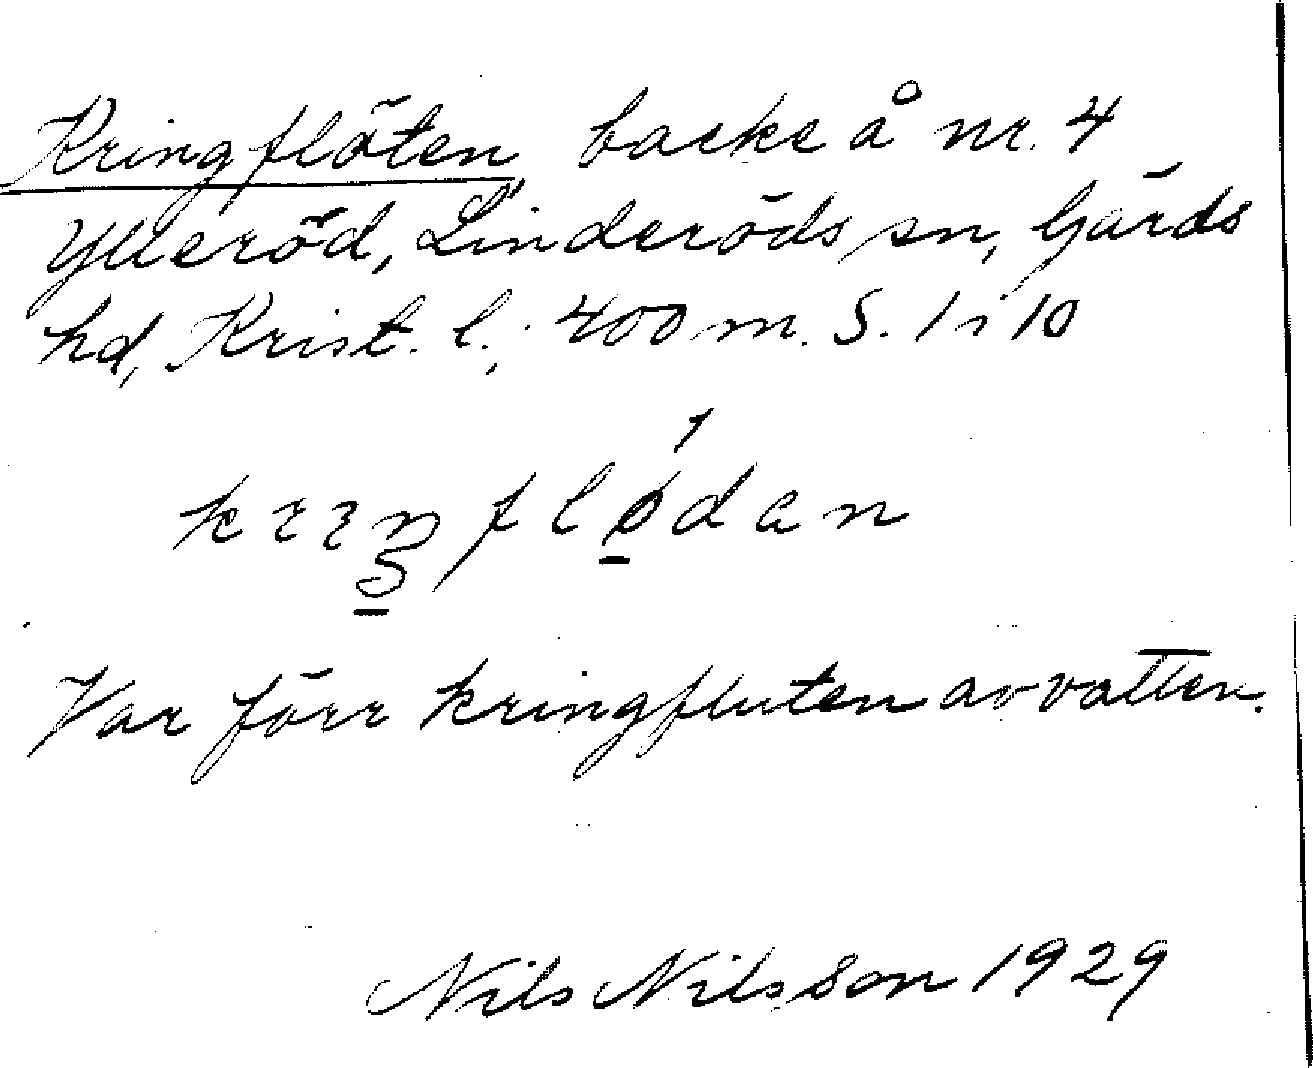 Kringflöten, backe å nr. 4
Ylleröd, Linderöds sn, Gärds
hd, Krist. l.; 400 m. S. 1 i 10
Var förr kringfluten av vatten.
Nils Nilsson 1929